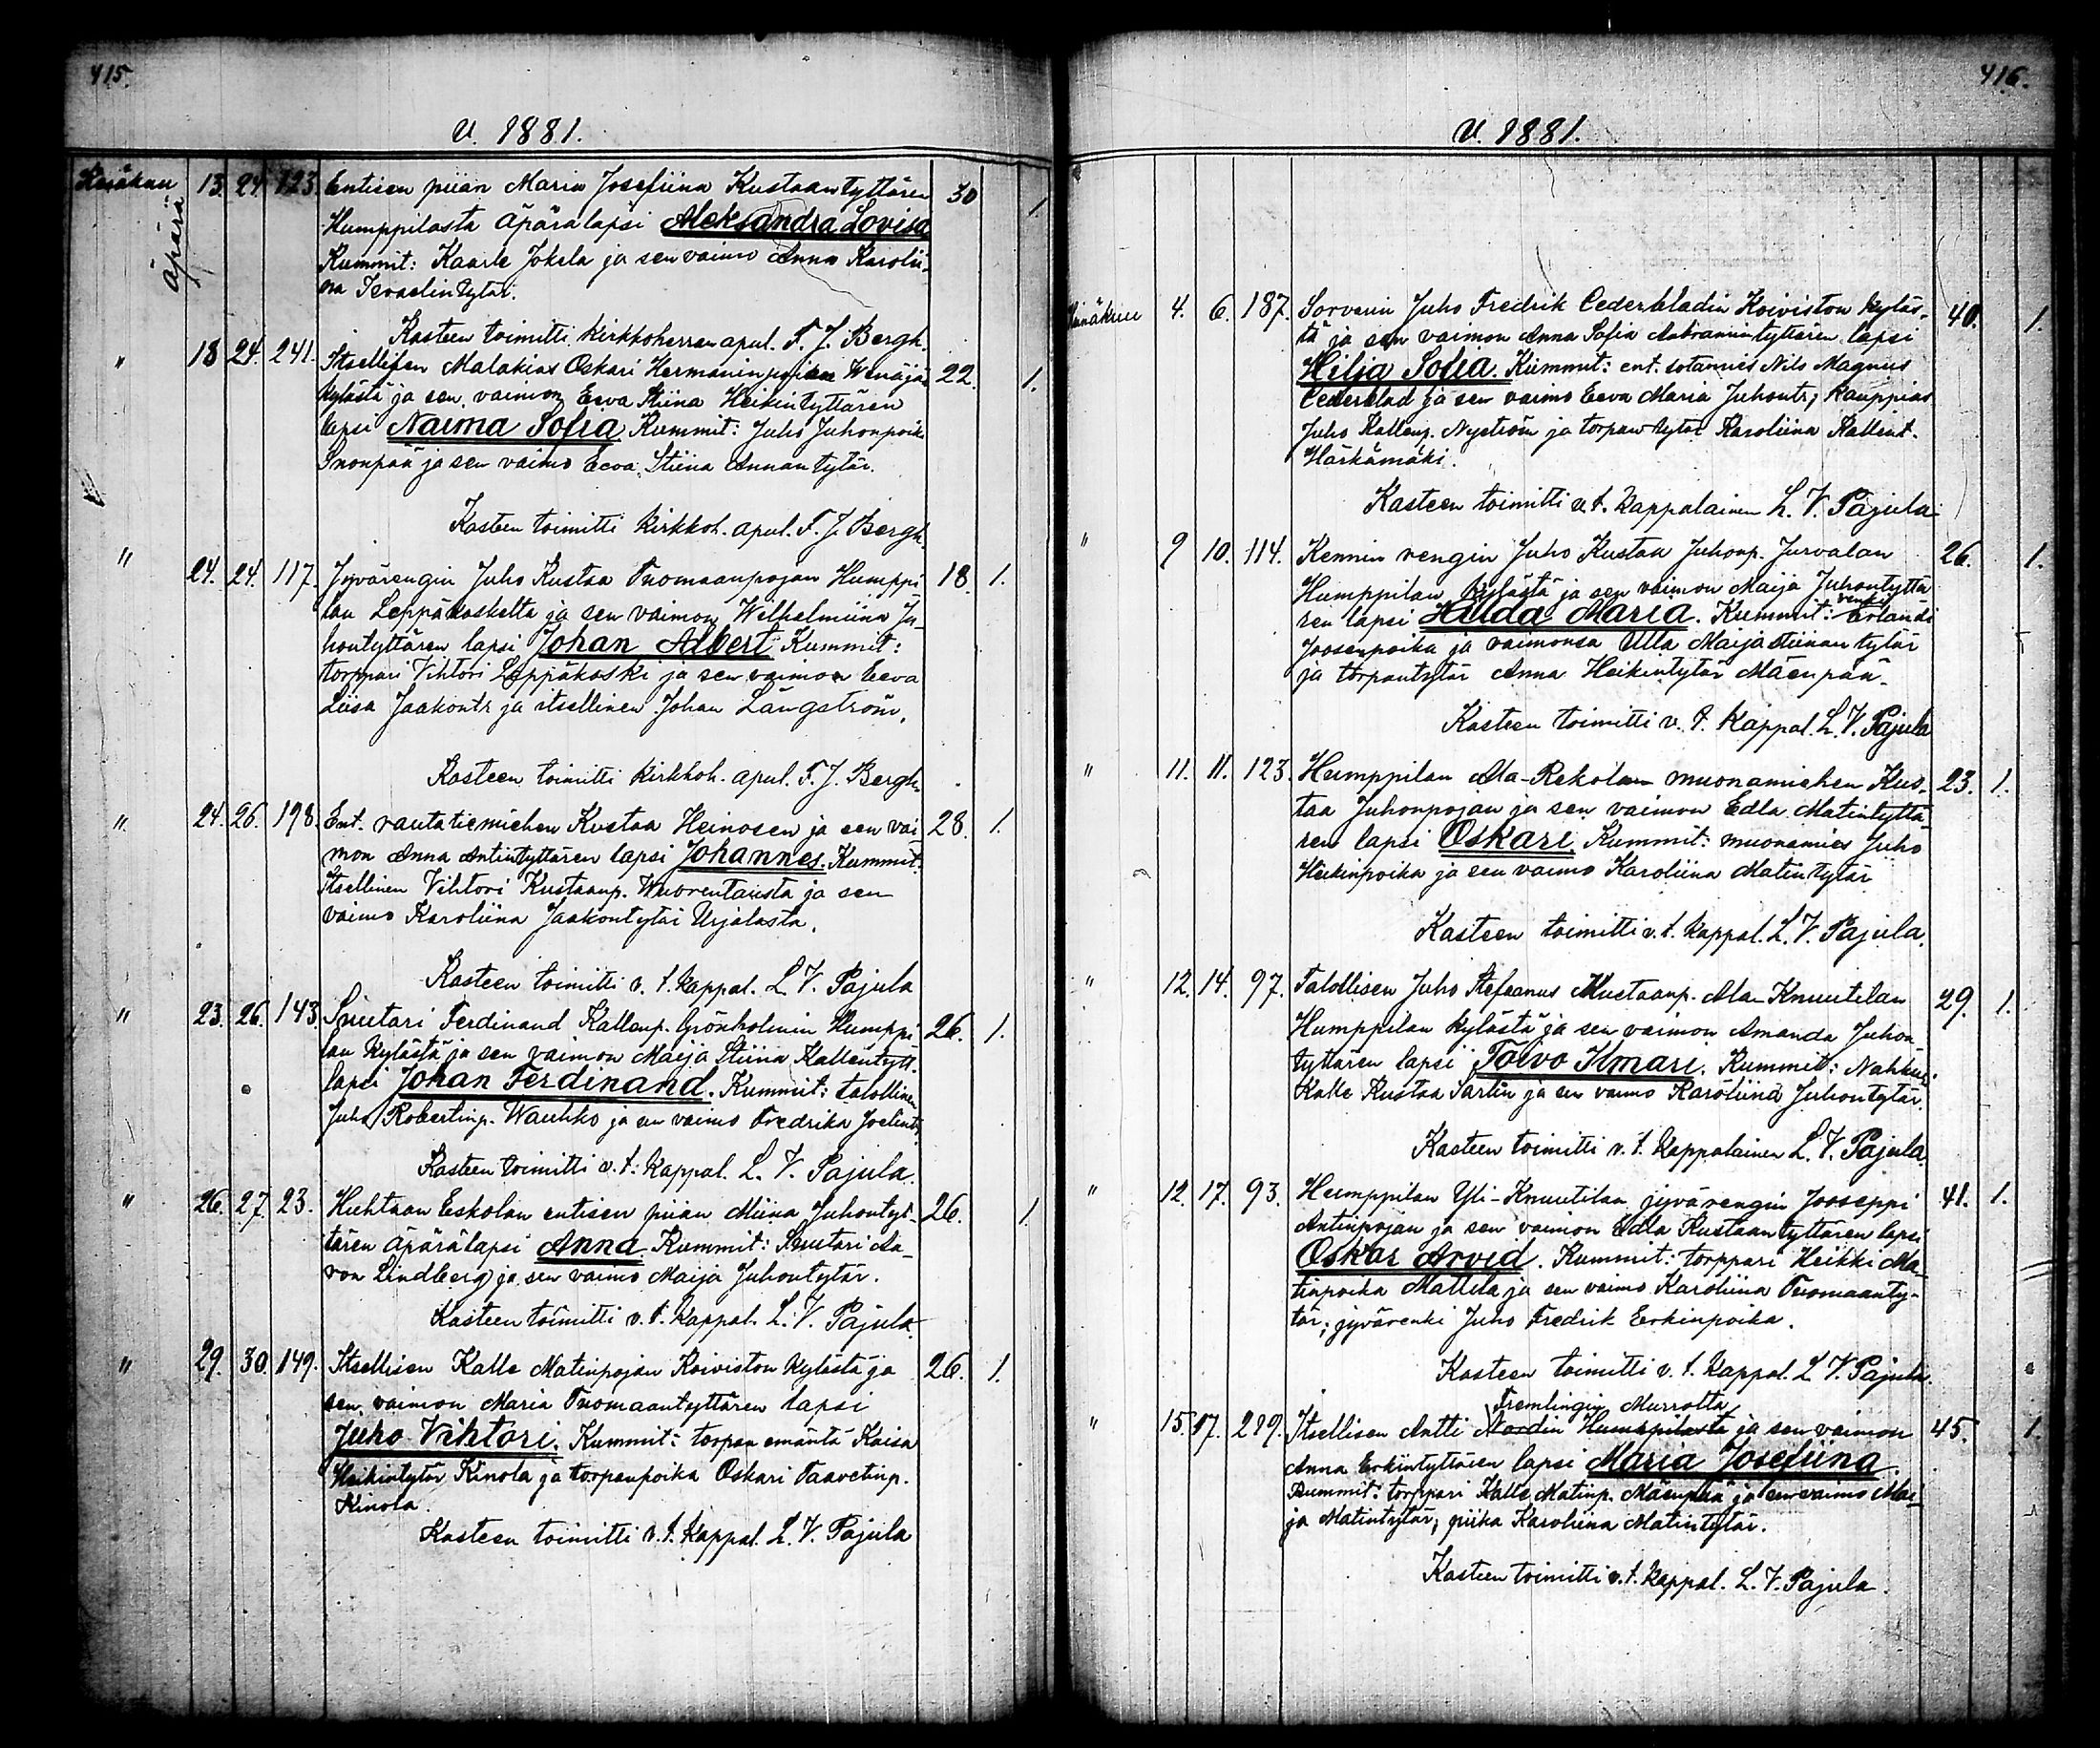 415.
v. 1881.
Kesäkuu 13. 24. 123. Entisen piian Maria Josefiina Kustaantyttären 30 1.
äpärä
Humppilasta äpärälapsi Aleksandra Lovisa
Kummit: Kaarle Jokela ja sen vaimo Anna Karolii-
na
Kasteen toimitti kirkkoherran apul. F. J. Bergh.
" 18 24. 241. Itsellisen Malakias Oskari Hermanninpojan Wenäjän 22. 1.
kylästä ja sen vaimon Eeva Stiina Heikintyttären
lapsi Naima Sofia Kummit: Juho Juhonpoik.
ja sen vaimo Eeva Stiina Annantytär.
Kasteen toimitti kirkkoh. apul. F. J. Bergh.
" 24. 24. 117. Jyvärengin Juho Kustaa Tuomaanpojan Humppi- 18. 1.
lan Leppäkoskelta ja sen vaimon Wilhelmiina Ju-
hontyttären lapsi Johan Albert Kummit:
torppari Vihtori Leppäkoski ja sen vaimon Eeva
Liisa Jaakontr ja itsellinen Johan Långström.
Kasteen toimitti kirkkoh. apul. F. J. Bergh.
" 24. 26. 198. Ent. rautatiemiehen Kustaa Heinosen ja sen vai 28. 1.
mon Anna Antintyttären lapsi Johannes. Kummit:
Itsellinen Vihtori Kustaanp. Wuorentausta ja sen
vaimo Karoliina Jaakontytär Urjalasta.
Kasteen toimitti v. t. kappal. L. V. Pajula
" 23. 26. 143. Suutari Ferdinand Kallenp. Grönholmin Humppi 26. 1.
lan kylästä ja sen vaimon Maija Stiina Kallentytt.
lapsi Johan Ferdinand. Kummit: talollinen
Juho Robertinp. Wauhko ja sen vaimo Fredrika Joelintr
Kasteen toimitti v. t. kappal. L. V. Pajula.
" 26. 27. 23. Huhtaan Eskolan entisen piian Miina Juhontyt- 26. 1.
tären äpärälapsi Anna. Kummit: Suutari Aa-
ron Lindberg ja sen vaimo Maija Juhontytär.
Kasteen toimitti v. t. kappal. L. V. Pajula.
" 29. 30. 149. Itsellisen Kalle Matinpojan Koiviston kylästä ja 26. 1.
sen vaimon Maria Tuomaantyttären lapsi
Juho Vihtori. Kummit: torpan emäntä Kaisa
Heikintytär Kinola ja torpanpoika Oskari Taavetinp.
Kinola.
Kasteen toimitti v. t. kappal. L. V. Pajula
416.
v. 1881.
Heinäkuu 4. 6. 187. Sorvarin Juho Fredrik Cederbladin Koiviston kyläs- 40. 1.
tä ja sen vaimon Anna Sofia Aabramintyttären lapsi
Hilja Sofia. Kummit: ent. sotamies Nils Magnus
Cederblad ja sen vaimo Eeva Maria Juhontr; kauppias
Juho Kallenp. Nyström ja torpan tytär Karoliina Kallent.
Härkämäki.
Kasteen toimitti v. t. kappalainen L. V. Pajula
" 9 10. 114. Kennin rengin Juho Kustaa Juhonp. Jurvalan 26. 1.
Humppilan kylästä ja sen vaimon Maija Juhontyttä
ren lapsi Hilda Maria. Kummit: renki Erlandi
Joosenpoika ja vaimonsa Ulla Maija Stiinantytär
ja torpantytär Anna Heikintytär Mäenpää.
Kasteen toimitti v. t. kappal. L. V. Pajula
" 11. 11. 123. Humppilan Ala-Rekolan muonamiehen Kus- 23. 1.
taa Juhonpojan ja sen vaimon Edla Matintyttä
ren lapsi Oskari. Kummit: muonamies Juho
Heikinpoika ja sen vaimo Karoliina Matintytär
Kasteen toimitti v. t. kappal. L. V. Pajula.
" 12. 14. 97. Talollisen Juho Stefaanus Kustaanp. Ala-Knuutilan 29. 1.
Humppilan kylästä ja sen vaimon Amanda Juhon-
tyttären lapsi Toivo Ilmari. Kummit: Nahkuri
Kalle Kustaa Sarlin ja sen vaimo Karoliina Juhontytär.
Kasteen toimitti v. t. kappalainen L. V. Pajula.
" 12. 17. 93. Humppilan Yli-Knuutilan jyvärengin Jooseppi 41. 1.
Antinpojan ja sen vaimon Edla Kustaantyttären lapsi
Oskar Arvid. Kummit: torppari Heikki Ma-
tinpoika Mattila ja sen vaimo Karoliina Tuomaanty-
tär; jyvärenki Juho Fredrik Eerkinpoika.
Kasteen toimitti v. t. kappal. L. V. Pajula.
Fremlingin Murrolta
" 15. 17. 289. Itsellisen Antti Nordin Humppilasta ja sen vaimon 45. 1.
Anna Erkintyttären lapsi Maria Josefiina.
Kummit: torppari Kalle Matinp. Mäenpää ja sen vaimo Mai-
ja Matintytär; piika Karoliina Matintytär.
Kasteen toimitti v. t. kappal. L. V. Pajula.